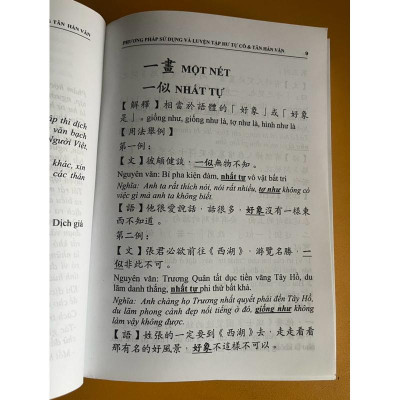 & TÂN HÁN VĂN
PHƯƠNG PHÁP SỬ DỤNG VÀ LUYỆN TẬP HƯ TỰ CỔ & TÂN HÁN VĂN 9
ập thì dích
văn bạch
Người Việt.
khác, xin
các thán
Dịch giả
一畫 MỘT NÉT
一似 NHẤT TỰ
【解釋】相當於語體的「好象」或「好象
是」, giống như, giống như là, tợ như là, hình như là
【用法舉例】
第一例：
【文】披頗健談，一似無物不知。
Nguyên văn: Bí pha kiện đàm, nhất tự vô vật bất tri
Nghĩa: Anh ta rất thích nói, nói rất nhiều, tợ như không có
việc gì mà anh ta không biết.
【語】他很愛說話，話很多，好象沒有一樣東
西不知道。
第二例：
【文】張君必欲前往《西湖》，游覽名勝，一
似非此不可。
Nguyên văn: Trương Quân tất dục tiền vãng Tây Hồ, du
lãm danh thắng, nhất tự phi thử bất khả.
Nghĩa: Anh chàng họ Trương nhất quyết phải đến Tây Hồ,
du lãm phong cảnh đẹp nổi tiếng ở đó, giống như không
làm vậy không được.
【語】姓張的一定要到《西湖》去，走走看看
那有名的好風景，好象不這樣不可以。